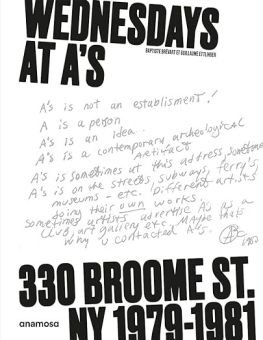 WEDNESDAYS
BAPTISTE BRÉVART ET GUILLAUME ETTLINGER
AT A'S
A's is not an establisment!
A is a person
A's is an idea.
A's is a contemporary archeological
Artifact
A's is sometimes at this address, sometime
A's is on the streets, subways, ferry's,
museums - etc. Different artists
doing their own works.
sometimes artists advertise A's as a
Club, art gallery etc. Maybe thats
why u contacted A's.
1980
330 BROOME ST.
anamosa
NY 1979-1981